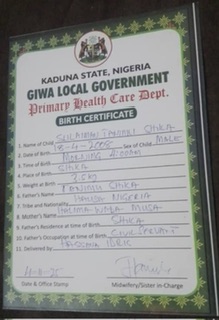 KADUNA STATE, NIGERIA
GIWA LOCAL GOVERNMENT
Primary Health Care Dept.
BIRTH CERTIFICATE
1. Name of Child SULAIMAN SHIKA
2. Date of Birth 18-4-2008 Sex of Child MALE
3. Time of Birth MORNING
4. Place of Birth SHIKA
5. Weight at Birth 3.5kg
6. Father's Name SHIKA
7. Tribe and Nationality HAUSA NIGERIA
8. Mother's Name MUSA
9. Father's Residence at time of Birth SHIKA
10. Father's Occupation at time of Birth CIVIL SERVANT
11. Delivered by
Date & Office Stamp Midwifery/Sister in-Charge